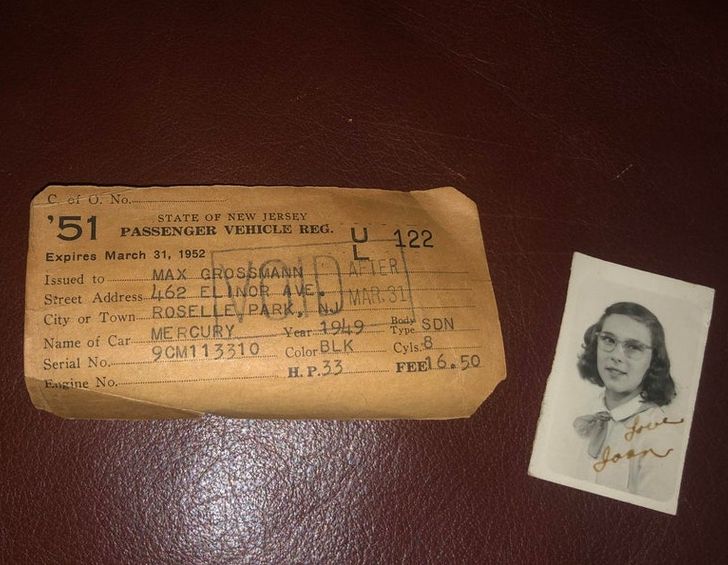 C. of O. No.
'51 STATE OF NEW JERSEY
PASSENGER VEHICLE REG.
U
L 122
Expires March 31, 1952
VOID AFTER
MAR. 31
Issued to MAX GROSSMANN
Street Address 462 ELINOR AVE.
City or Town ROSELLE PARK, NJ
Name of Car MERCURY Year 1949 Body Type SDN
Serial No. 9CM113310 Color BLK Cyls. 8
Engine No. H. P. 33 FEE 16.50
Love
Joan